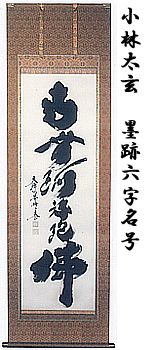 小林太玄　墨跡六字名号
南無阿弥陀佛